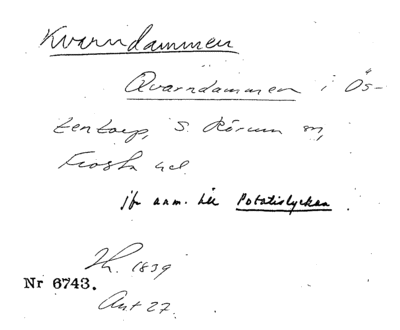 Kvarndammen
Qvarndammen i Ös-
tentorp, S. Rörum sn,
Frosta hd.
jfr anm. till Potatislyckan
Lh. 1839
Nr 6743.
Akt 27.